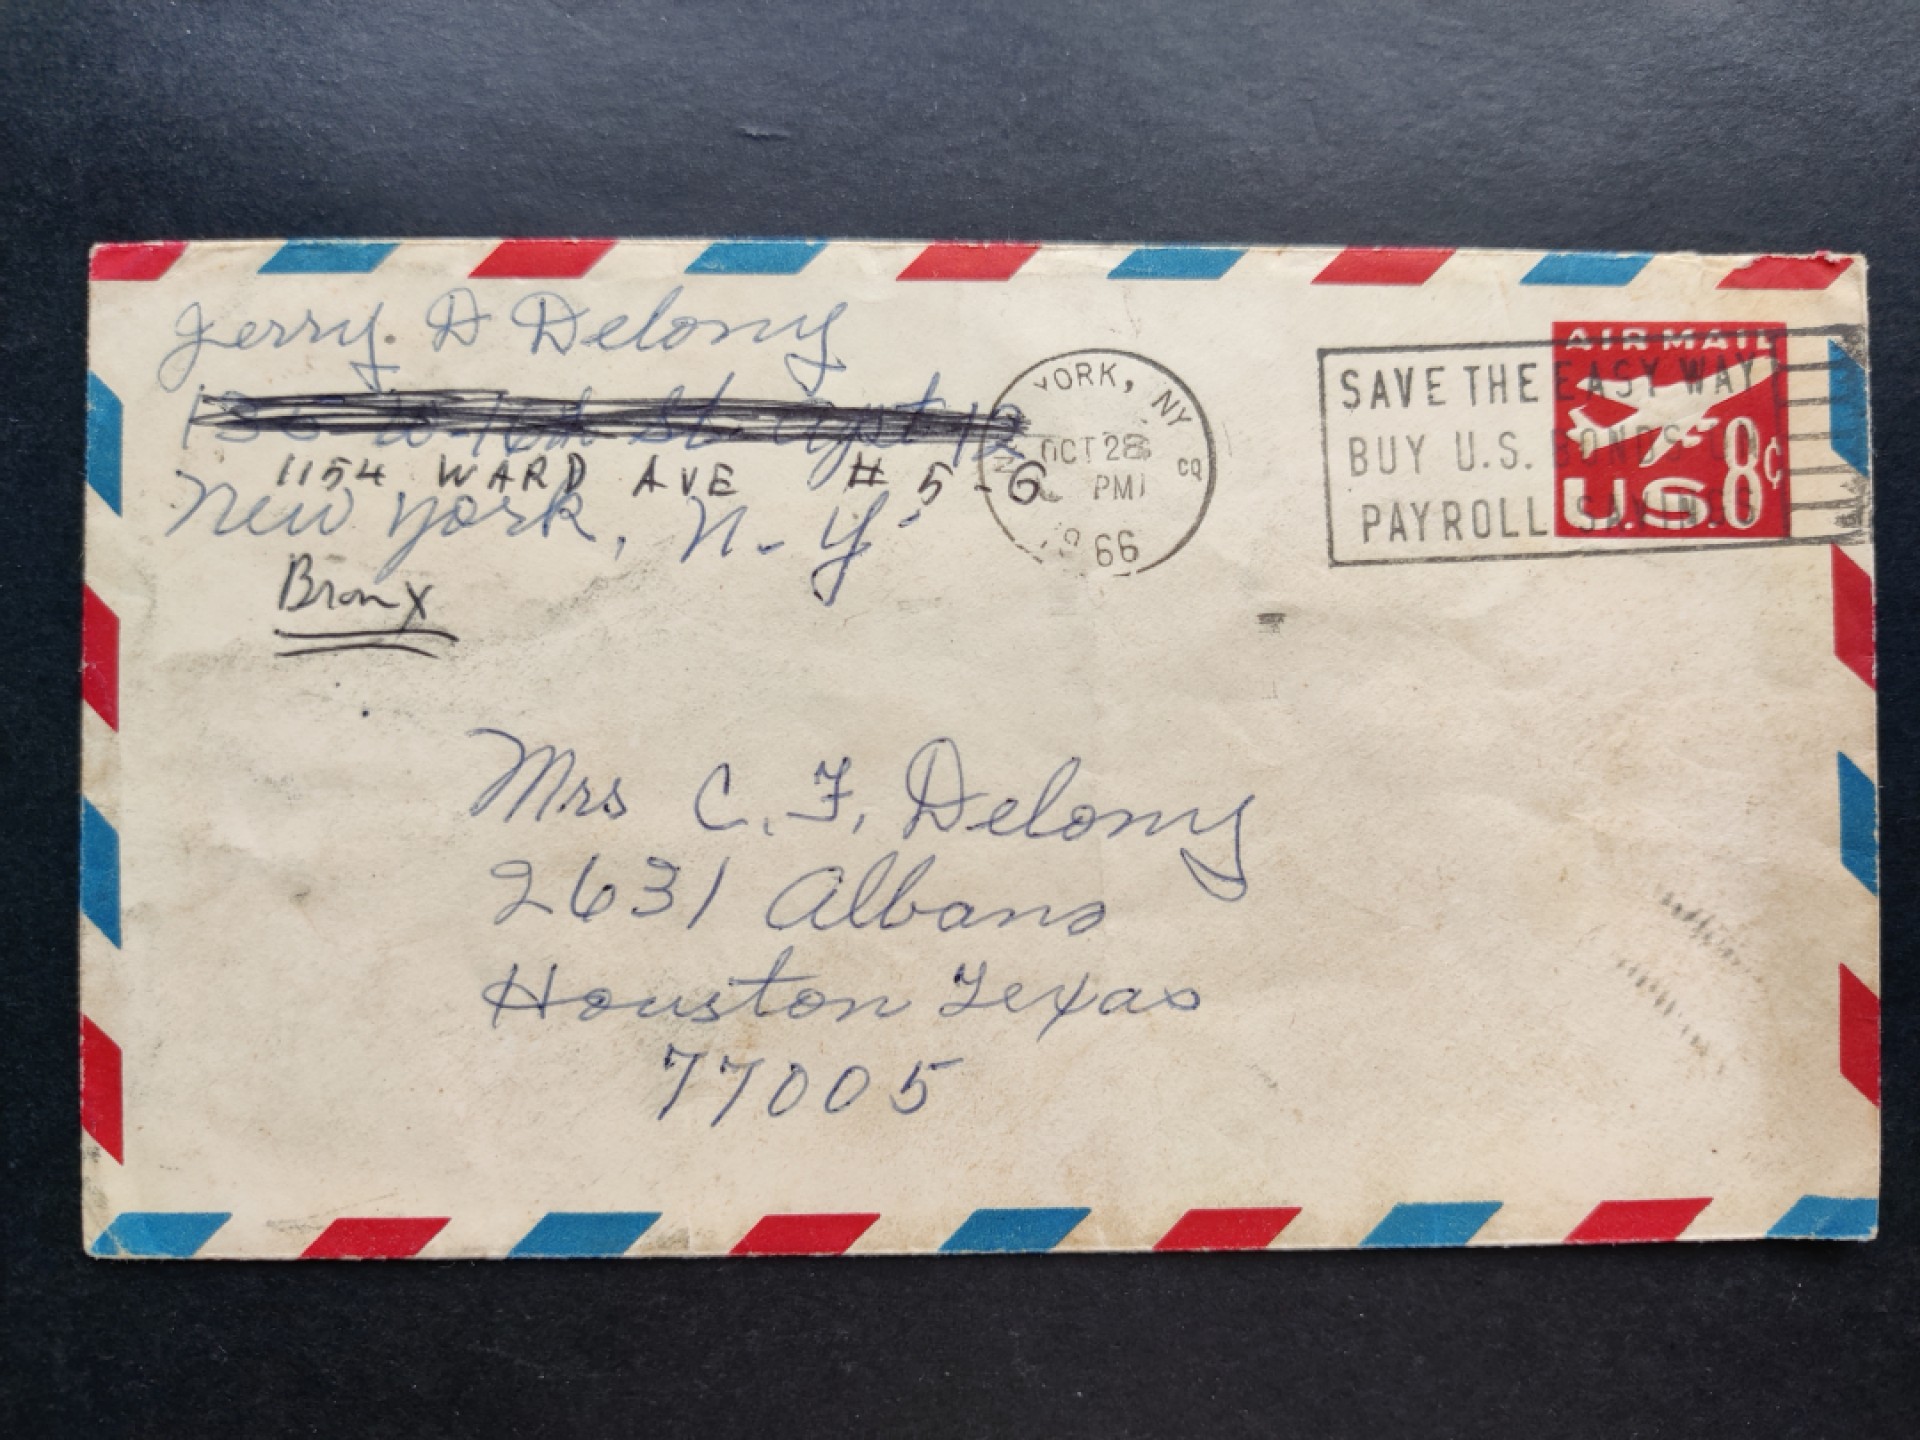 Jerry. D Delony
W 16th St Apt 12
1154 WARD AVE # 5-G
New York, N-Y
Bronx
YORK, NY
OCT 28
PM
CQ
1966
AIR MAIL
SAVE THE EASY WAY
BUY U.S. BONDS ON
PAYROLL SAVINGS
U.S. 8¢
Mrs C. F. Delony
2631 Albans
Houston Texas
77005